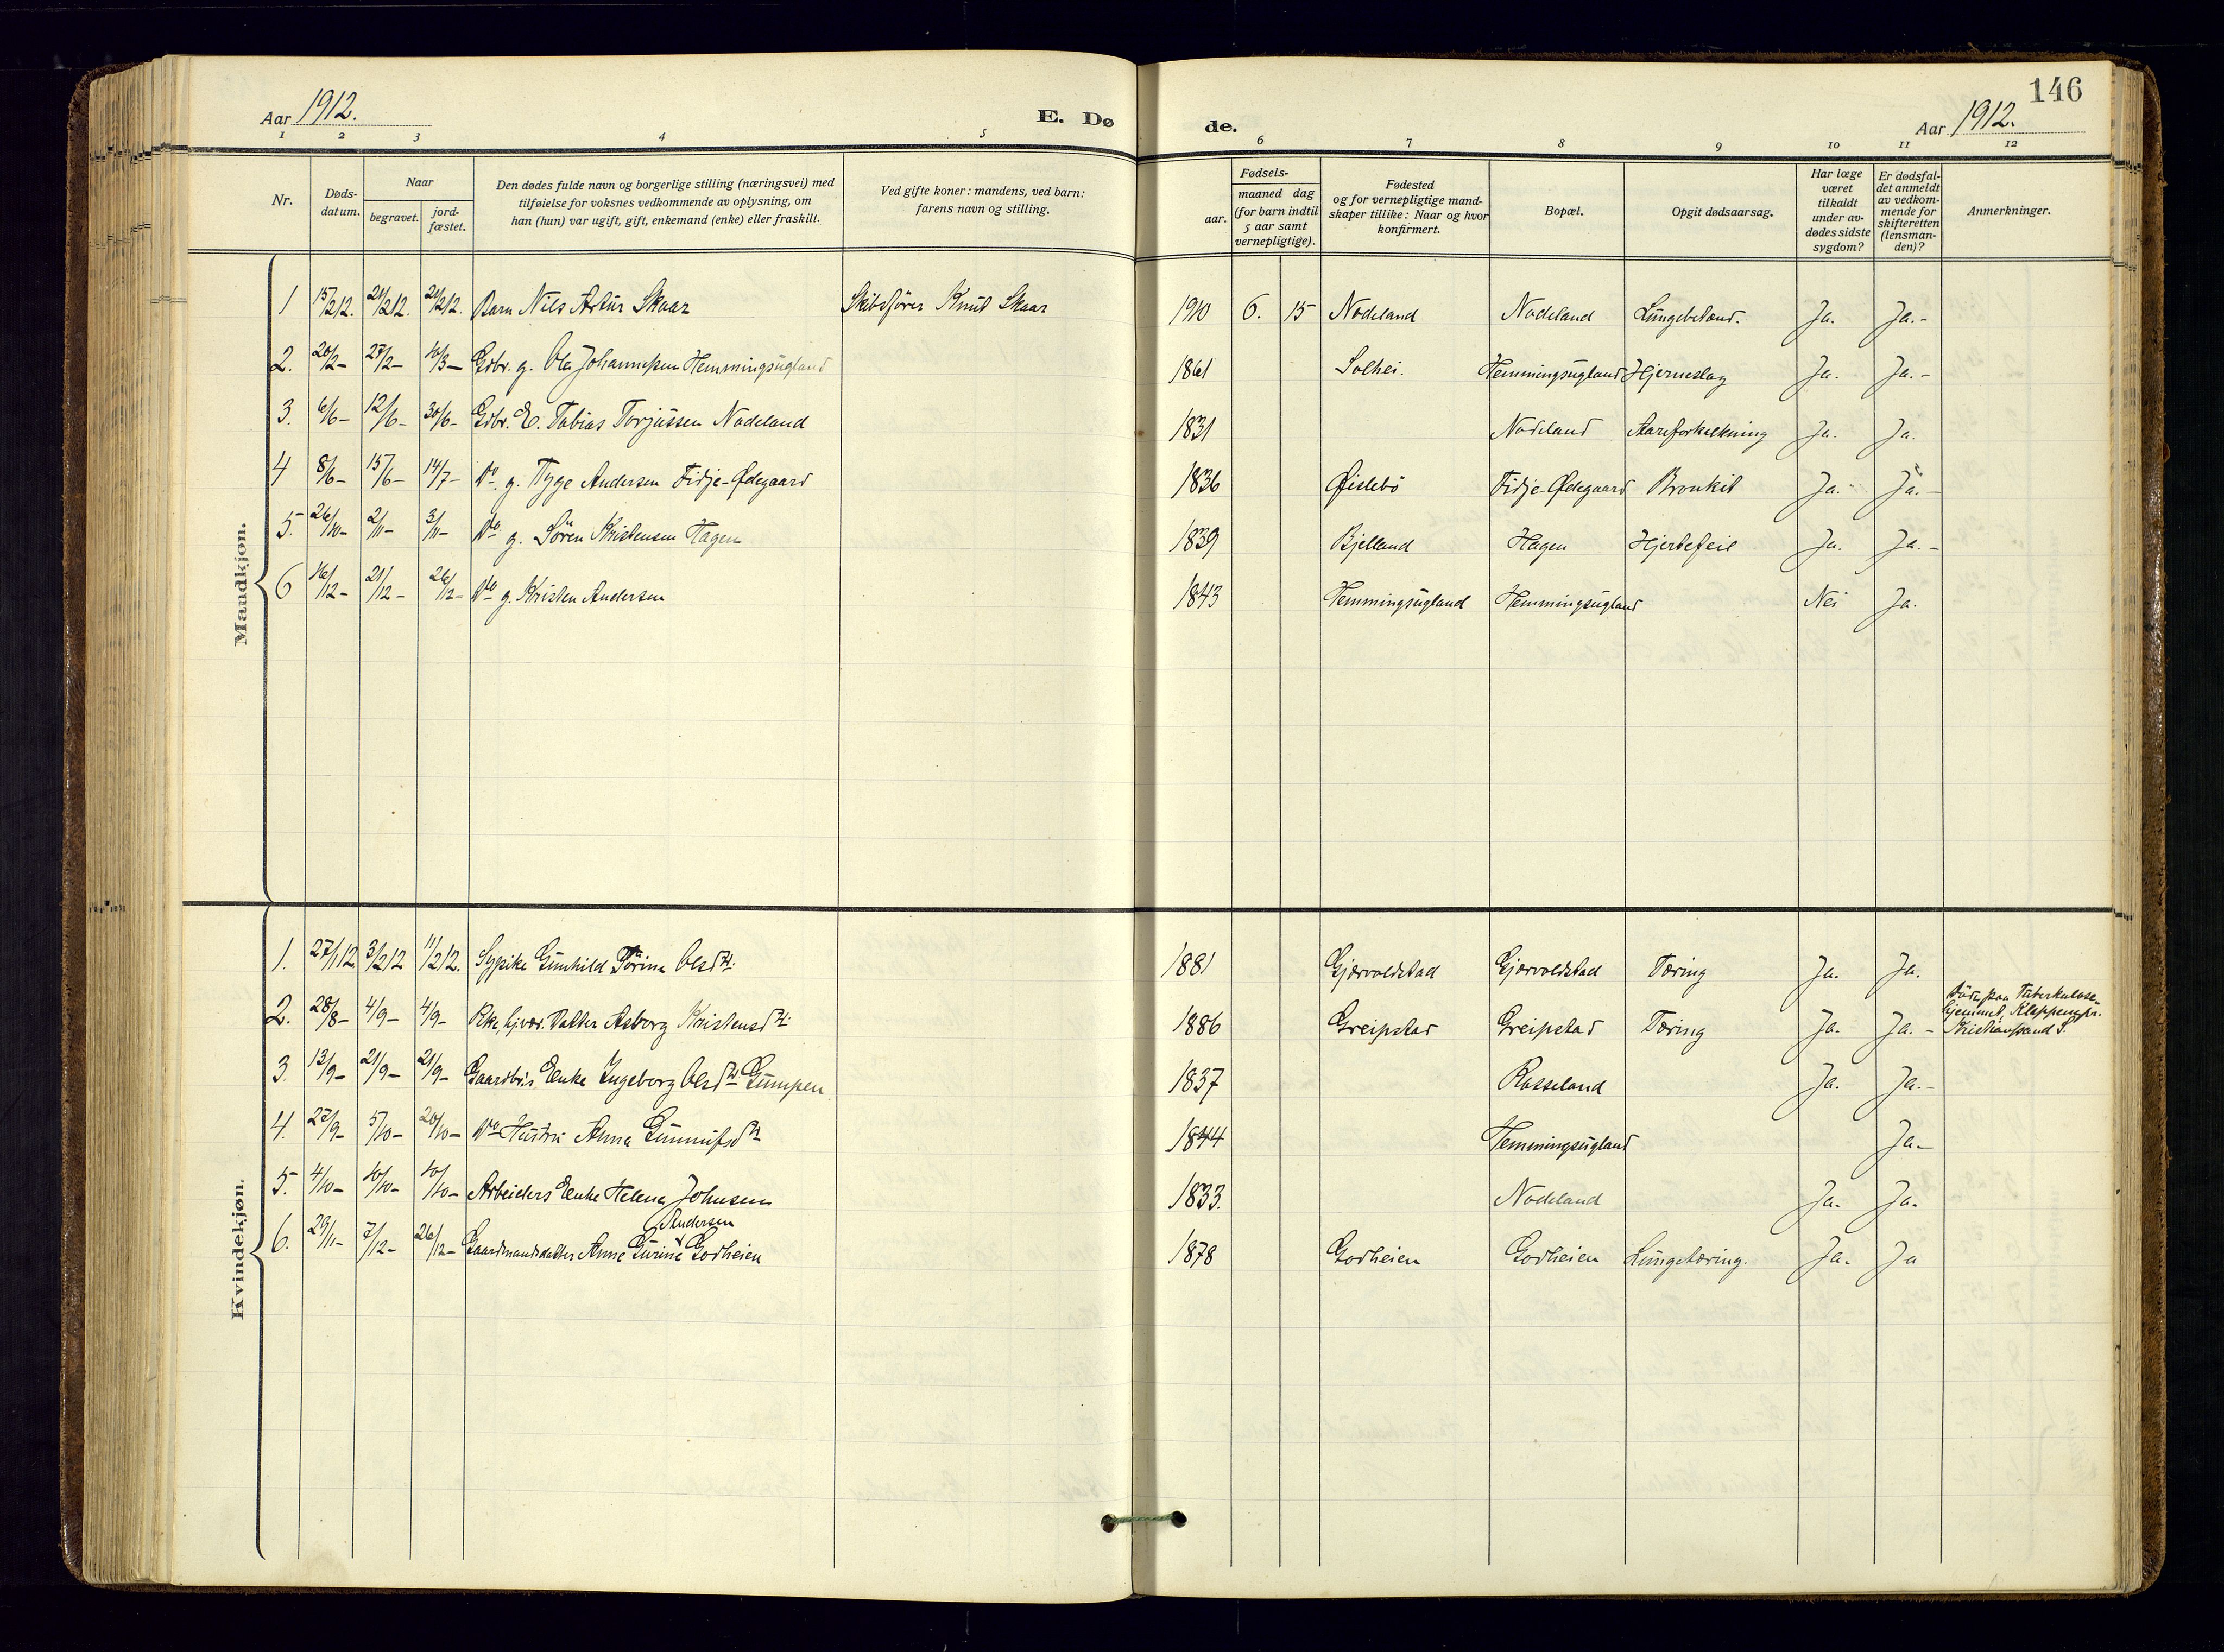 146
Aar 1912. E. Dø de. Aar 1912.
1 2 3 4 5 6 7 8 9 10 11 12
Nr.
Døds-
datum.
Naar
begravet.
jord-
fæstet.
Den dødes fulde navn og borgerlige stilling (næringsvei) med
tilføielse for voksnes vedkommende av oplysning, om
han (hun) var ugift, gift, enkemand (enke) eller fraskilt.
Ved gifte koner: mandens, ved barn:
farens navn og stilling.
Fødsels-
aar.
maaned dag
(for barn indtil
5 aar samt
vernepligtige).
Fødested
og for vernepligtige mand-
skaper tillike: Naar og hvor
konfirmert.
Bopæl.
Opgit dødsaarsag.
Har læge
været
tilkaldt
under av-
dødes sidste
sygdom?
Er dødsfal-
det anmeldt
av vedkom-
mende for
skifteretten
(lensman-
den)?
Anmerkninger.
Mandkjøn.
1 15/2 12. 21/2 12. 21/2 12. Barn Nils Artur Skaar Skibsfører Knut Skaar 1910 6. 15 Nodeland Nodeland Lungebetænd. Ja. Ja.-
2. 20/2- 27/2- 10/3- Gdbr. g. Ole Johannessen Hemmingsugland 1861 Solhei. Hemmingsugland Hjerneslag Ja. Ja.-
3. 6/6- 12/6- 30/6- Gdbr. E. Tobias Torjussen Nodeland 1831 Nodeland Aareforkalkning Ja. Ja.
4 8/6- 15/6- 14/7- Do. g. Tyge Andersen Fidje-Ødegaard 1836 Øislebö Fidje-Ødegaard Bronkit Ja.- Ja.-
5. 26/10- 2/11- 3/11- Do. g. Sören Kristensen Hagen 1839 Bjelland Hagen Hjertefeil Ja. Ja.-
6 16/12- 21/12- 26/12- Do g. Kristen Andersen 1843 Hemmingsugland Hemmingsugland Nei Ja.
Kvindekjøn.
1. 27/1 12 3/2 12 11/2 12. Sypike Gunhild Torine Olsdtr. 1881 Gjervoldstad Gjervoldstad Tæring Ja. Ja.
2. 28/8- 4/9- 4/9- Pike, hjvær. Datter Asborg Kristensdtr. 1886 Greipstad Greipstad Tæring Ja. Ja.- Döde paa Tuberkulose-
hjemmet, Kristianssand S.
3. 13/9- 21/9- 21/9- Gaardbr.s Enke Ingeborg Olsdtr Gumpen 1837 Rosseland Ja. Ja.-
4. 27/9- 5/10- 20/10- Do Hustru Anna Gunnufsdtr 1844 Hemmingsugland Ja-
5. 4/10- 10/10- 10/10- Arbeiders Enke Helene Johnsen 1833. Nodeland Ja. Ja.
Andersen
6. 29/11- 7/12- 26/12- Gaardmandsdatter Anne Gurine Godheien 1878 Godheien Godheien Lungetæring. Ja. Ja